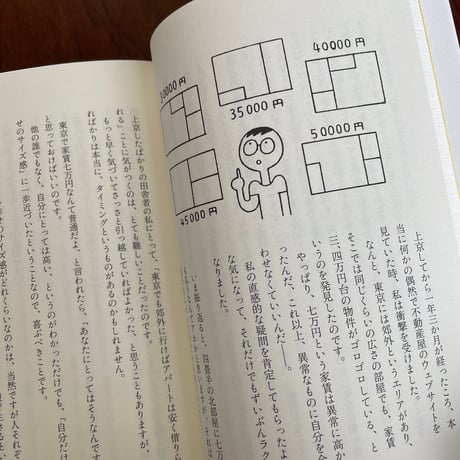 30000円
35000円
40000円
45000円
50000円
上京してから一年三か月が経ったころ、本
当に何かの偶然で不動産屋のウェブサイトを
見ていた時、私は衝撃を受けました。
なんと、東京には郊外というエリアがあり、
そこでは同じくらいの広さの部屋でも、家賃
三、四万円台の物件がゴロゴロしている、と
いうのを発見したのです。
やっぱり、七万円という家賃は異常に高か
ったんだ、これ以上、異常なものに自分を
わせなくていいんだ――。
私の直感的な疑問を肯定してもらったよ
な気になって、それだけでもずいぶんラク
なりました。
ま振り返ると、四畳半の北部屋に七万
上京したばかりの田舎者の私にとって、「東京でも郊外に行けばアパートは安く借り
れる」ことに気がつくのは、とても難しいことだったのです。
もっと早く気づいてさっさと引っ越していればよかった、と思うこともありますが、
ればかりは本当に、タイミングというものがあるのかもしれません。
東京で家賃七万円なんて普通だよ、と言われたら、「あなたにとってはそうなんです
と思っておけばいいのです。
他の誰でもなく、自分にとっては高い、というのがわかっただけでも、「自分だけ
せのサイズ感」に一歩近づいたということなので、喜ぶべきことです。
サイズ感がどれくらいなのかは、当然ですが人それぞれ